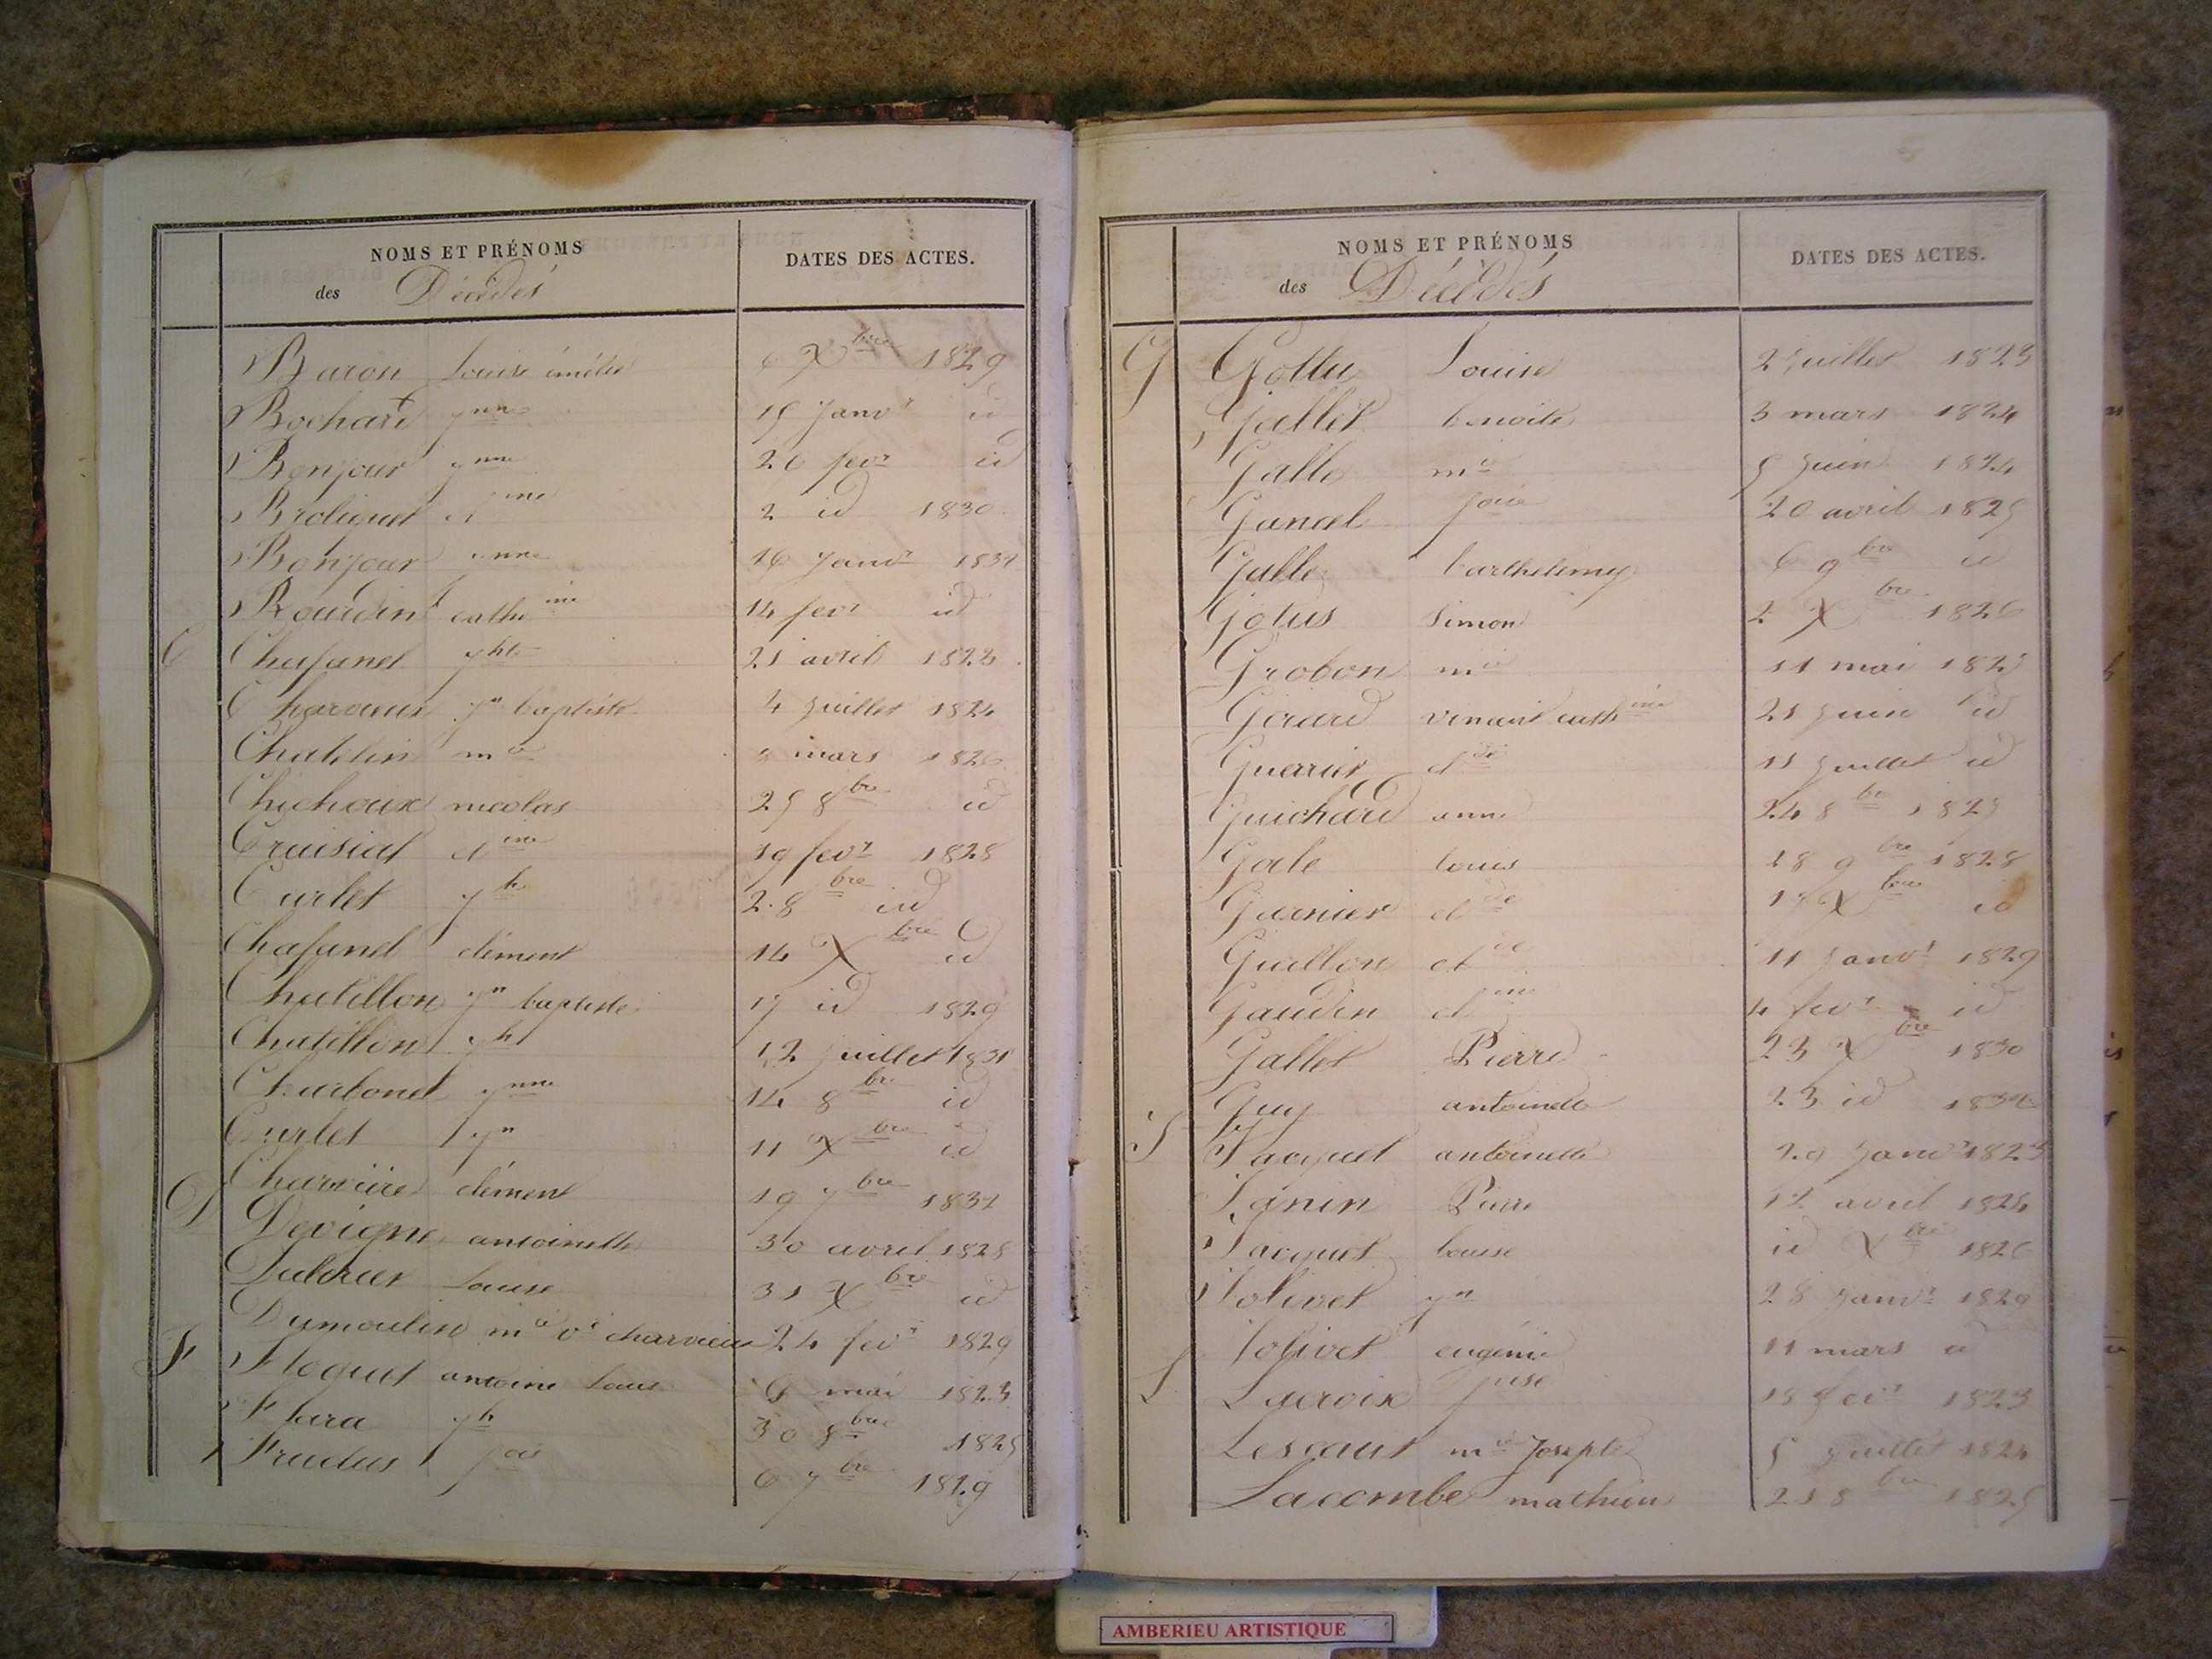 NOMS ET PRÉNOMS
des Décédés
DATES DES ACTES.
Baron Louise émélie 6 Xbre 1829
Bochard jnne 15 janvr id
Bonjour jnne 26 fevr id
Broliquet 2 id 1830
Bonjour jnne 16 janvr
Bourdin cathine 14 fevr id
C Chafanel yhte 21 avril
Charvieux jn baptiste 4 juillet 1824
Chatelin mie mars 1826
Chichoux nicolas 25 8bre id
Cruisiat cline 19 fevr 1828
Curlet jh 2 8bre id
Chafanel clément 14 Xbre id
Chatillon jn baptiste 17 id 1829
Chatillon jh 12 juillet 1831
Charbonel jnne 14 8bre id
Curlet jn 11 Xbre id
Charvière clément 19 7bre
D Devigne antoinette 30 avril 1828
Louise 31 Xbre id
Dumoulin mie ve charvieux 24 fevr 1829
F Floquet antoine Louis mai 1823
Flara jh 30 8bre 1825
Frudus foise 6 7bre 1829
NOMS ET PRÉNOMS
des Décédés
DATES DES ACTES.
G Gottu Louise 2 juillet 1823
Gallet benoite 3 mars 1824
Galle mie 5 juin 1824
Gancel foise 20 avril 1825
Galle barthelemy 6 9bre id
Gotus Simon 2 Xbre 1826
Grobon mie 11 mai
Girard venant cathine 21 juin id
Guerrier clde 11 juillet id
Guichard anne 24 8bre
Gale louis 18 9bre 1828
Garnier clde Xbre id
Guillon clde 11 janvr 1829
Gaudin cline 4 fevr id
Gallet Pierre 23 Xbre 1830
Guy antoinette 23 id
J Jacquet antoinette janvr 1823
Janin Pierre 12 avril 1824
Jacquet louise id Xbre 1826
Jolivet jn 28 janvr 1829
Jolivet eugénie 11 mars id
L Lacroix fse 18 fevr 1823
Lescaut mie Josephte 5 juillet 1824
Lacombe mathieu 21 8bre 1825
AMBERIEU ARTISTIQUE